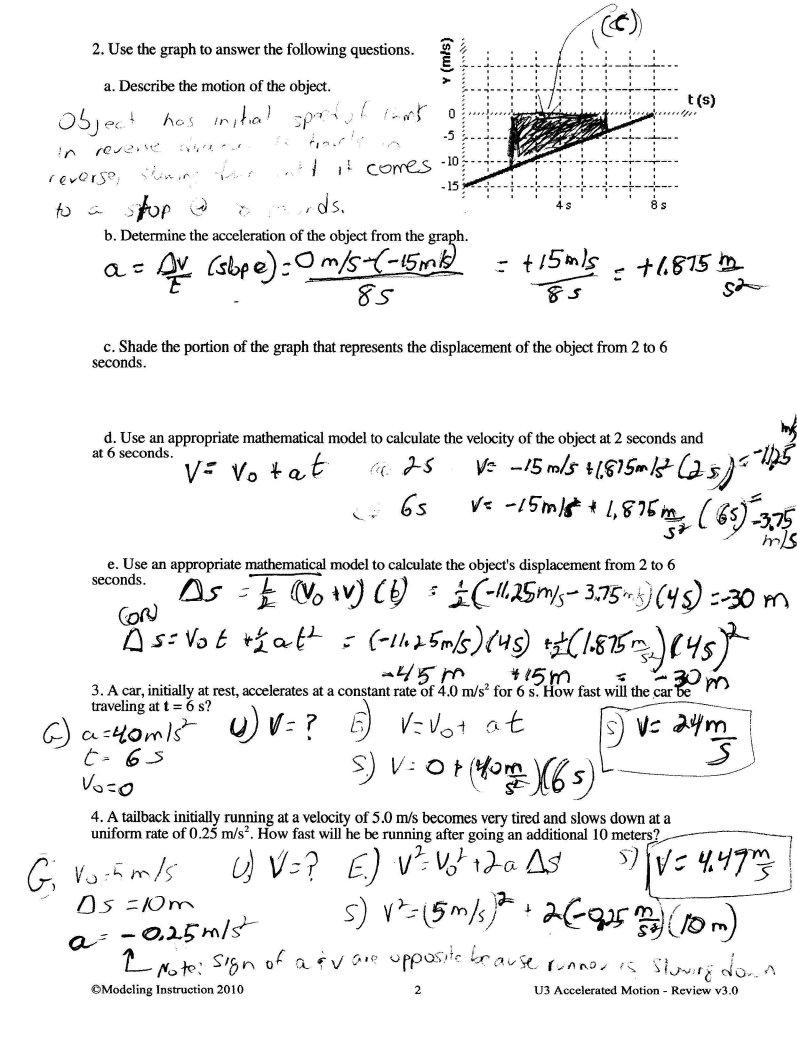 (c)
2. Use the graph to answer the following questions.
v (m/s)
t (s)
0
-5
-10
-15
4 s
8 s
a. Describe the motion of the object.
Object has initial speed of 15m/s
in reverse
reverse, slowing down until it comes
to a stop @ 8
b. Determine the acceleration of the object from the graph.
a = Δv/t (slope) = 0 m/s-(-15m/s)/8s = +15m/s/8s = +1.875 m/s²
c. Shade the portion of the graph that represents the displacement of the object from 2 to 6
seconds.
d. Use an appropriate mathematical model to calculate the velocity of the object at 2 seconds and
at 6 seconds.
V = V₀ + at @ 2s V= -15 m/s +1,875m/s² (2s) = -11,25 m/s
@ 6s V= -15m/s + 1,875 m/s² (6s) = -3,75 m/s
e. Use an appropriate mathematical model to calculate the object's displacement from 2 to 6
seconds.
Δs = ½ (V₀ +V) (t) = ½(-11.25m/s - 3.75m/s)(4s) = -30 m
(OR)
Δs = V₀t +½at² = (-11.25m/s)(4s) +½(1.875m/s²)(4s)²
-45m +15m = -30m
3. A car, initially at rest, accelerates at a constant rate of 4.0 m/s² for 6 s. How fast will the car be
traveling at t = 6 s?
G) a=40m/s² U) V=? E) V=V₀+ at S) V= 24 m/s
t= 6s
V₀=0
S) V= 0 + (40 m/s²)(6s)
4. A tailback initially running at a velocity of 5.0 m/s becomes very tired and slows down at a
uniform rate of 0.25 m/s². How fast will he be running after going an additional 10 meters?
G, V₀=5m/s U) V=? E.) V²=V₀²+2aΔs S) V= 4.47 m/s
Δs =10m
S) V²=(5m/s)² + 2(-0.25 m/s²)(10m)
a= -0.25m/s²
Note: Sign of a & v are opposite because runner is slowing down
©Modeling Instruction 2010
2
U3 Accelerated Motion - Review v3.0